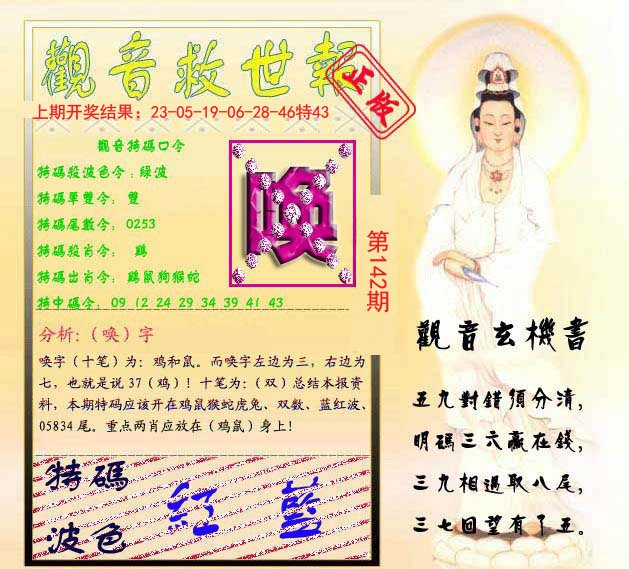 觀音救世報
正版
上期开奖结果：23-05-19-06-28-46特43
觀音特碼口令
特碼殺波色令：綠波
特碼單雙令：雙
特碼尾數令：0253
特碼殺肖令：鷄
特碼出肖令：鷄鼠狗猴蛇
特中碼令：09 12 24 29 34 39 41 43
喚
第142期
分析：（唤）字
唤字（十笔）为：鸡和鼠。而唤字左边为三，右边为
七，也就是说37（鸡）！十笔为：（双）总结本报资
料，本期特码应该开在鸡鼠猴蛇虎兔、双数、蓝红波、
05834尾。重点两肖应放在（鸡鼠）身上！
特碼
波色
紅藍
觀音玄機書
五九對錯須分清，
明碼三六贏在錢，
三九相遇取八尾，
三七回望有了五。